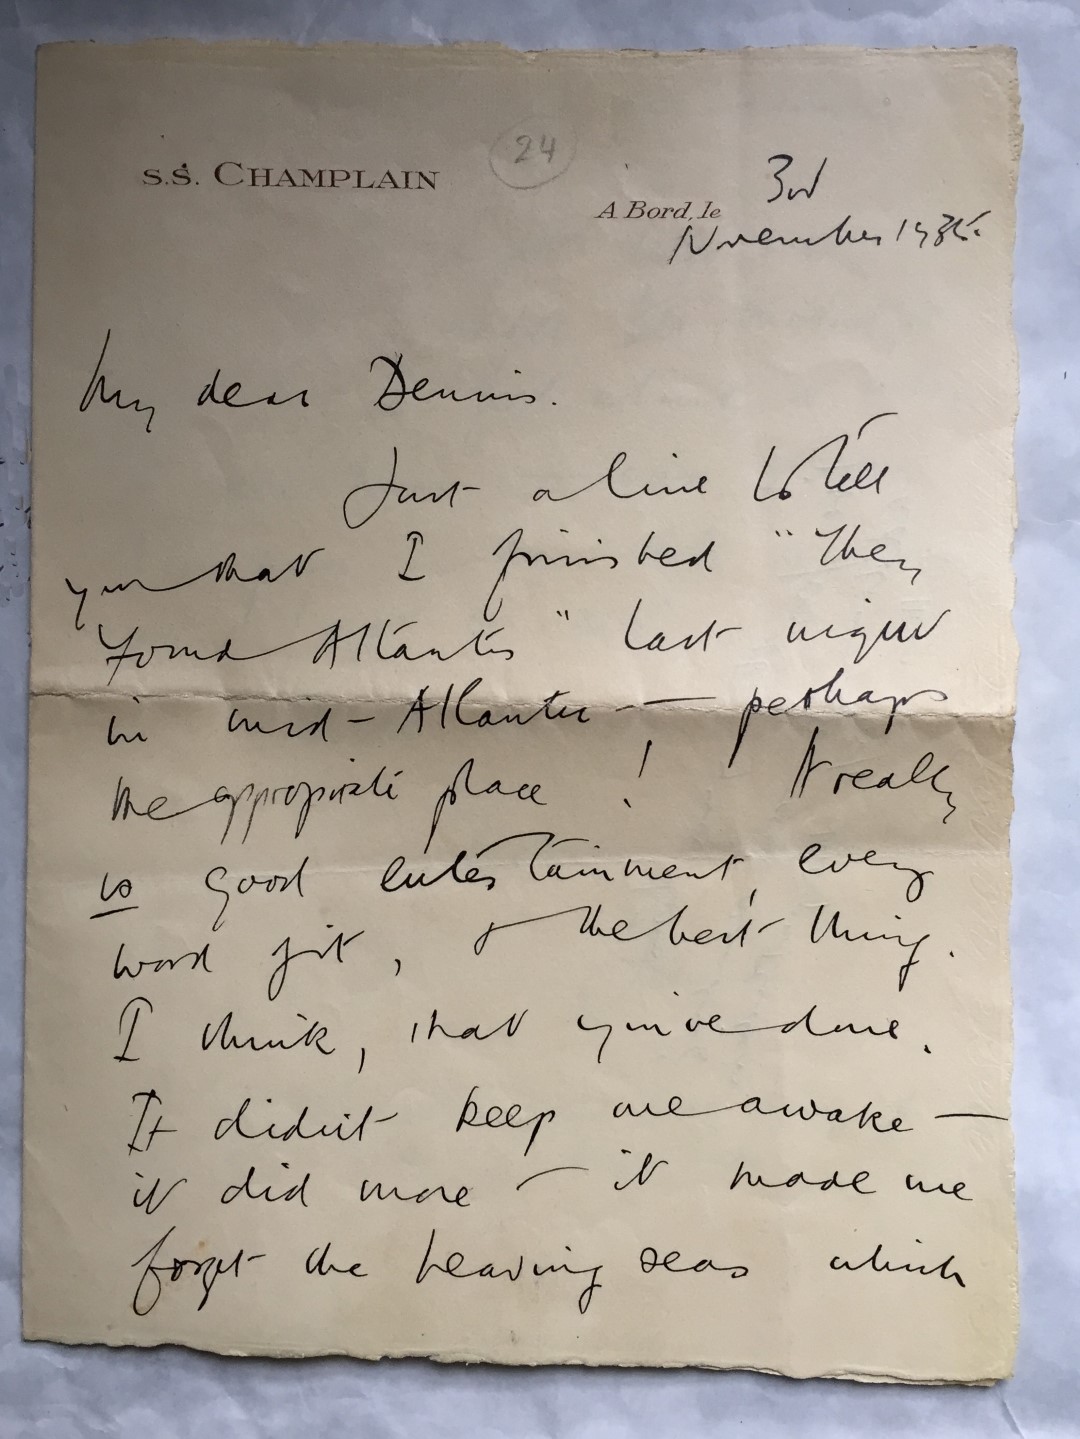 24
S.S. CHAMPLAIN
3rd
A Bord, le
November 1936.
My dear Dennis.
Just a line to tell
you that I finished "They
Found Atlantis" last night
in mid-Atlantic — perhaps
the appropriate place! It really
is good entertainment, every
word of it, & the best thing.
I think, that you've done.
It didn't keep me awake —
it did more — it made me
forget the heaving seas which